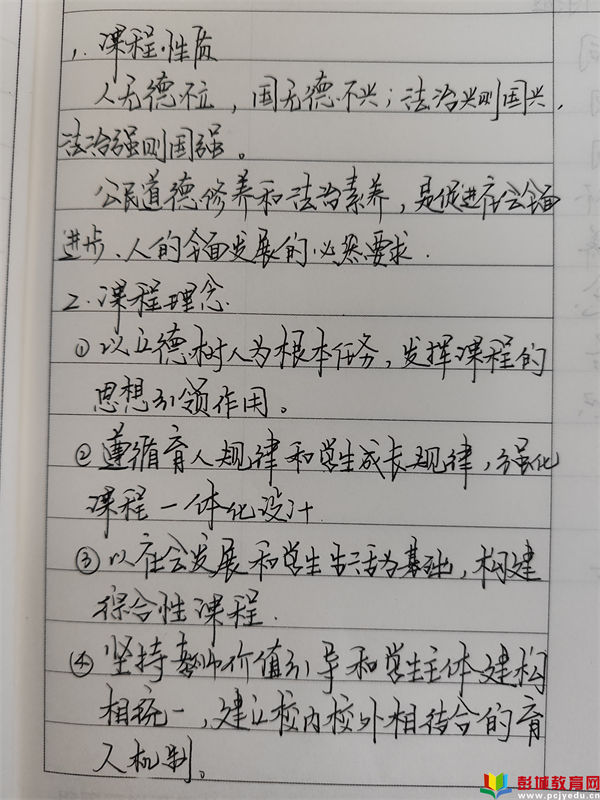 1. 课程性质
人无德不立，国无德不兴；法治兴则国兴，
法治强则国强。
公民道德修养和法治素养，是促进社会全面
进步、人的全面发展的必然要求.
2. 课程理念.
① 以立德树人为根本任务，发挥课程的
思想引领作用。
② 遵循育人规律和学生成长规律，强化
课程一体化设计
③ 以社会发展和学生生活为基础，构建
综合性课程.
④ 坚持教师价值引导和学生主体建构
相统一，建立校内校外相结合的育
人机制。
彭城教育网
www.pcjyedu.cn